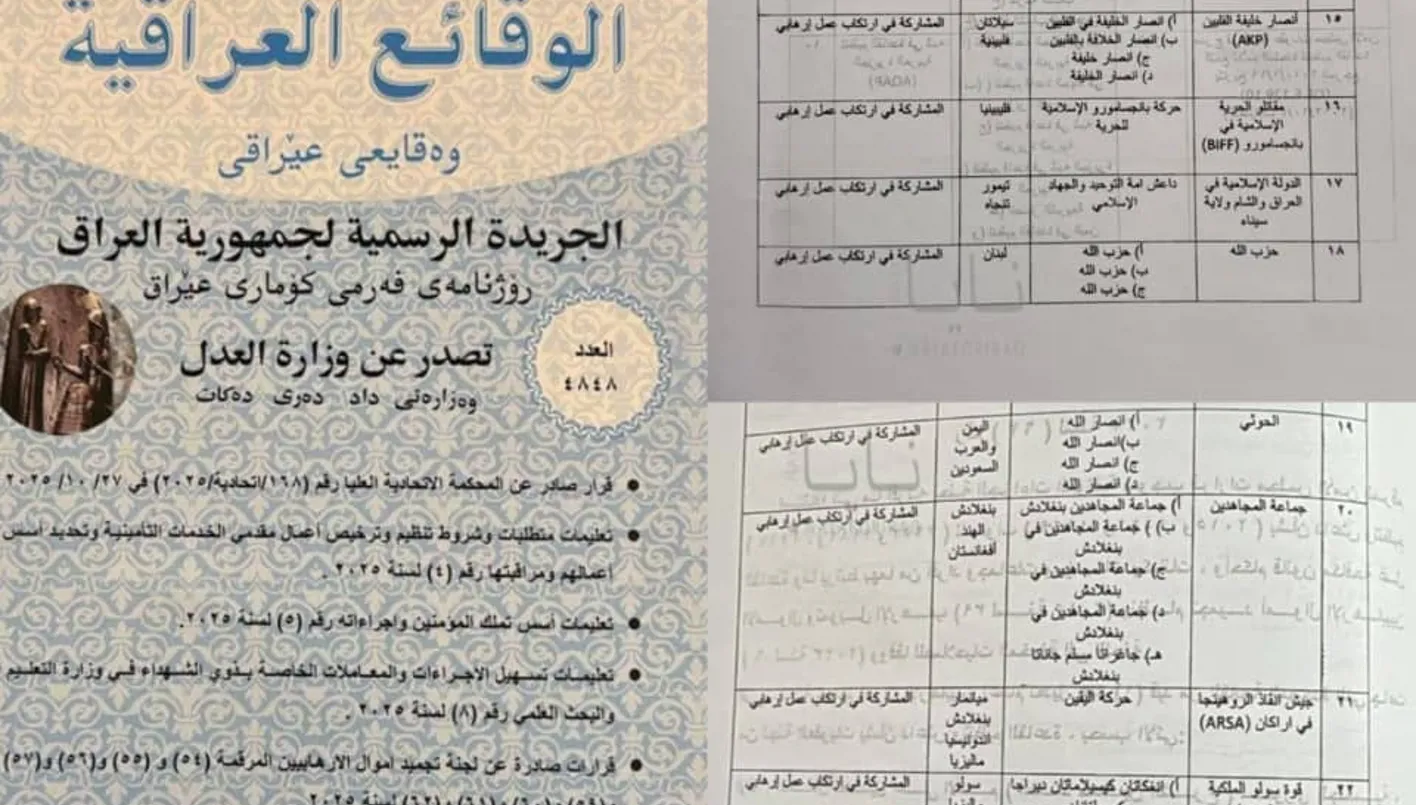 الوقائع العراقية
وەقايعى عێراقى
الجريدة الرسمية لجمهورية العراق
رۆژنامەى فەرمى كۆمارى عێراق
تصدر عن وزارة العدل
وەزارەتى داد دەرى دەكات
العدد
٤٨٤٨
• قرار صادر عن المحكمة الاتحادية العليا رقم (١٦٨/اتحادية/٢٠٢٥) في ٢٧/ ١٠/ ٢٠٢٥
• تعليمات متطلبات وشروط تنظيم وترخيص أعمال مقدمي الخدمات التأمينية وتحديد أسس
أعمالهم ومراقبتها رقم (٤) لسنة ٢٠٢٥ .
• تعليمات أسس تملك المؤمنين واجراءاته رقم (٥) لسنة ٢٠٢٥.
• تعليمات تسهيل الاجراءات والمعاملات الخاصة بذوي الشهداء في وزارة التعليم
والبحث العلمي رقم (٨) لسنة ٢٠٢٥ .
• قرارات صادرة عن لجنة تجميد اموال الارهابيين المرقمة (٥٤) و (٥٥) و(٥٦) و(٥٧)
لسنة ٢٠٢٥
١٥ أنصار خليفة الفلبين أ) انصار الخليفة في الفلبين المشاركة في ارتكاب عمل إرهابي
(AKP) ب) انصار الخلافة بالفلبين فلبينية
ج) انصار خليفة
د) انصار الخليفة
١٦ مقاتلو الحرية حركة بانجسامورو الإسلامية فليبينيا المشاركة في ارتكاب عمل إرهابي
الإسلامية في للحرية
بانجسامورو (BIFF)
١٧ الدولة الإسلامية في داعش امة التوحيد والجهاد تيمور المشاركة في ارتكاب عمل إرهابي
العراق والشام ولاية الإسلامي تنجاه
سيناء
١٨ حزب الله أ) حزب الله لبنان المشاركة في ارتكاب عمل إرهابي
ب) حزب الله
ج) حزب الله
١٩ الحوثي أ) انصار الله اليمن المشاركة في ارتكاب عمل إرهابي
ب)انصار الله والعرب
ج) انصار الله السعودين
د) انصار الله
٢٠ جماعة المجاهدين أ) جماعة المجاهدين بنغلادش بنغلادش المشاركة في ارتكاب عمل إرهابي
ب) جماعة المجاهدين في الهند
بنغلادش أفغانستان
ج) جماعة المجاهدين في
بنغلادش
د) جماعة المجاهدين في
بنغلادش
هـ) جاغراتا سلم جاناتا
بنغلادش
٢١ جيش انقاذ الروهينجا حركة اليقين ميانمار المشاركة في ارتكاب عمل إرهابي
في اراكان (ARSA) بنغلادش
اندونيسيا
ماليزيا
٢٢ قوة سولو الملكية أ) سولو المشاركة في ارتكاب عمل إرهابي